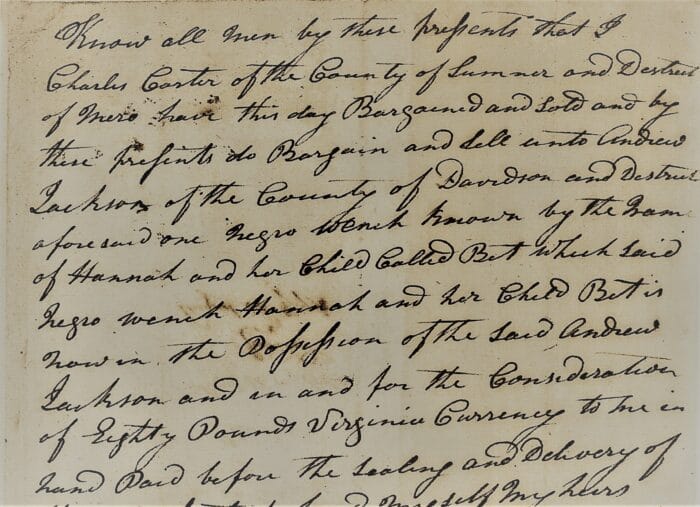 Know all men by these presents that I
Charles Carter of the County of Sumner and Destrict
of Mero have this day Bargained and Sold and by
these presents do Bargain and Sell unto Andrew
Jackson of the County of Davidson and Destrict
aforesaid one Negro wench known by the Nam
of Hannah and her Child Called Bet which Said
Negro wench Hannah and her Child Bet is
now in the Possession of the Said Andrew
Jackson and in and for the Consideration
of Eighty Pounds Virginia Currency to me in
hand Paid before the Sealing and Delivery of
myself my heirs